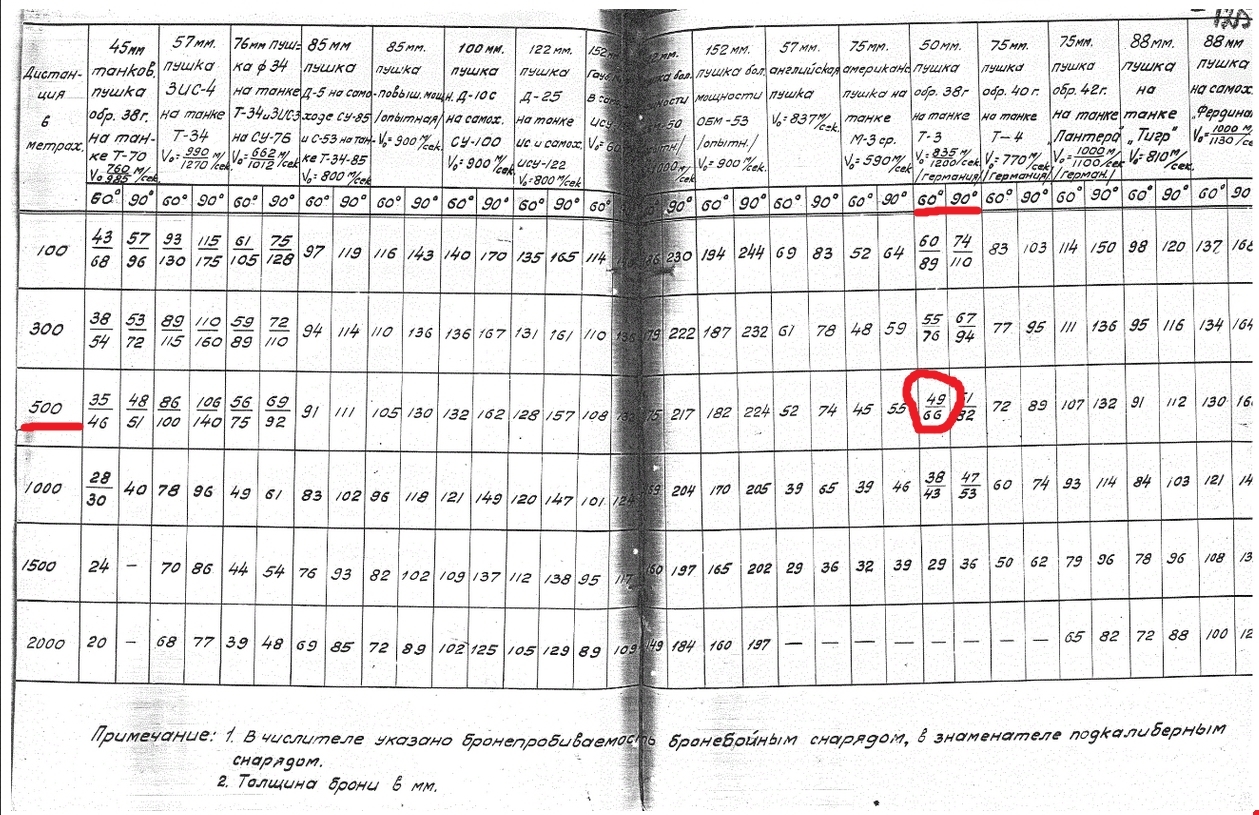 45мм танков. пушка обр. 38г. на танке Т-70 V₀ 760/985 м/сек.
57мм. пушка ЗИС-4 на танке Т-34 V₀=990/1270 м/сек.
76мм пушка ф 34 на танке Т-34 и ЗИС3 на СУ-76 V₀=662/1012 м/сек
85 мм пушка Д-5 на самоходе СУ-85 и С-53 на танке Т-34-85 V₀=800 м/сек
85мм. пушка повыш. мощн. /опытная/ V₀=900 м/сек.
100 мм. пушка Д-10с на самох. СУ-100 V₀=900 м/сек.
122 мм. пушка Д-25 на танке ИС и самох. ИСУ-122 V₀=800 м/сек
152 мм. пушка бол. мощности ОБМ-53 /опытн./ V₀=900 м/сек.
57мм английская пушка V₀=837 м/сек.
75мм. американс. пушка на танке М-3 ср. V₀=590 м/сек.
50мм. пушка обр. 38г на танке Т-3 V₀=835/1200 м/сек /германия/
75мм. пушка обр. 40г. на танке Т-4 V₀=770 м/сек. /германия/
75мм. пушка обр. 42г. на танке „Пантера" V₀=1000/1100 м/сек /герман./
88 мм. пушка на танке „Тигр" V₀=810 м/сек.
88мм пушка на самох. V₀=1000/1130
Дистанция в метрах.
60° 90° 60° 90° 60° 90° 60° 90° 60° 90° 60° 90° 60° 90° 60° 90° 60° 90° 60° 90° 60° 90° 60° 90° 60° 90° 60° 90° 60° 90° 60° 90
100 43/68 57/96 93/130 115/175 61/105 75/128 97 119 116 143 140 170 135 165 114 230 194 244 69 83 52 64 60/89 74/110 83 103 114 150 98 120 137
300 38/54 53/72 89/115 110/160 59/89 72/110 94 114 110 136 136 167 131 161 110 136 222 187 232 61 78 48 59 55/76 67/94 77 95 111 136 95 116 134
500 35/46 48/51 86/100 106/140 56/75 69/92 91 111 105 130 132 162 128 157 108 217 182 224 52 74 45 55 49/66 72 89 107 132 91 112 130
1000 28/30 40 78 96 49 61 83 102 96 118 121 149 120 147 101 124 204 170 205 39 65 39 46 38/43 47/53 60 74 93 114 84 103 121
1500 24 — 70 86 44 54 76 93 82 102 109 137 112 138 95 117 160 197 165 202 29 36 32 39 29 36 50 62 79 96 78 96 108
2000 20 — 68 77 39 48 69 85 72 89 102 125 105 129 89 109 149 184 160 197 — — — — — — — — 65 82 72 88 100
Примечание: 1. В числителе указано бронепробиваемость бронебойным снарядом, в знаменателе подкалиберным
снарядом.
2. Толщина брони в мм.